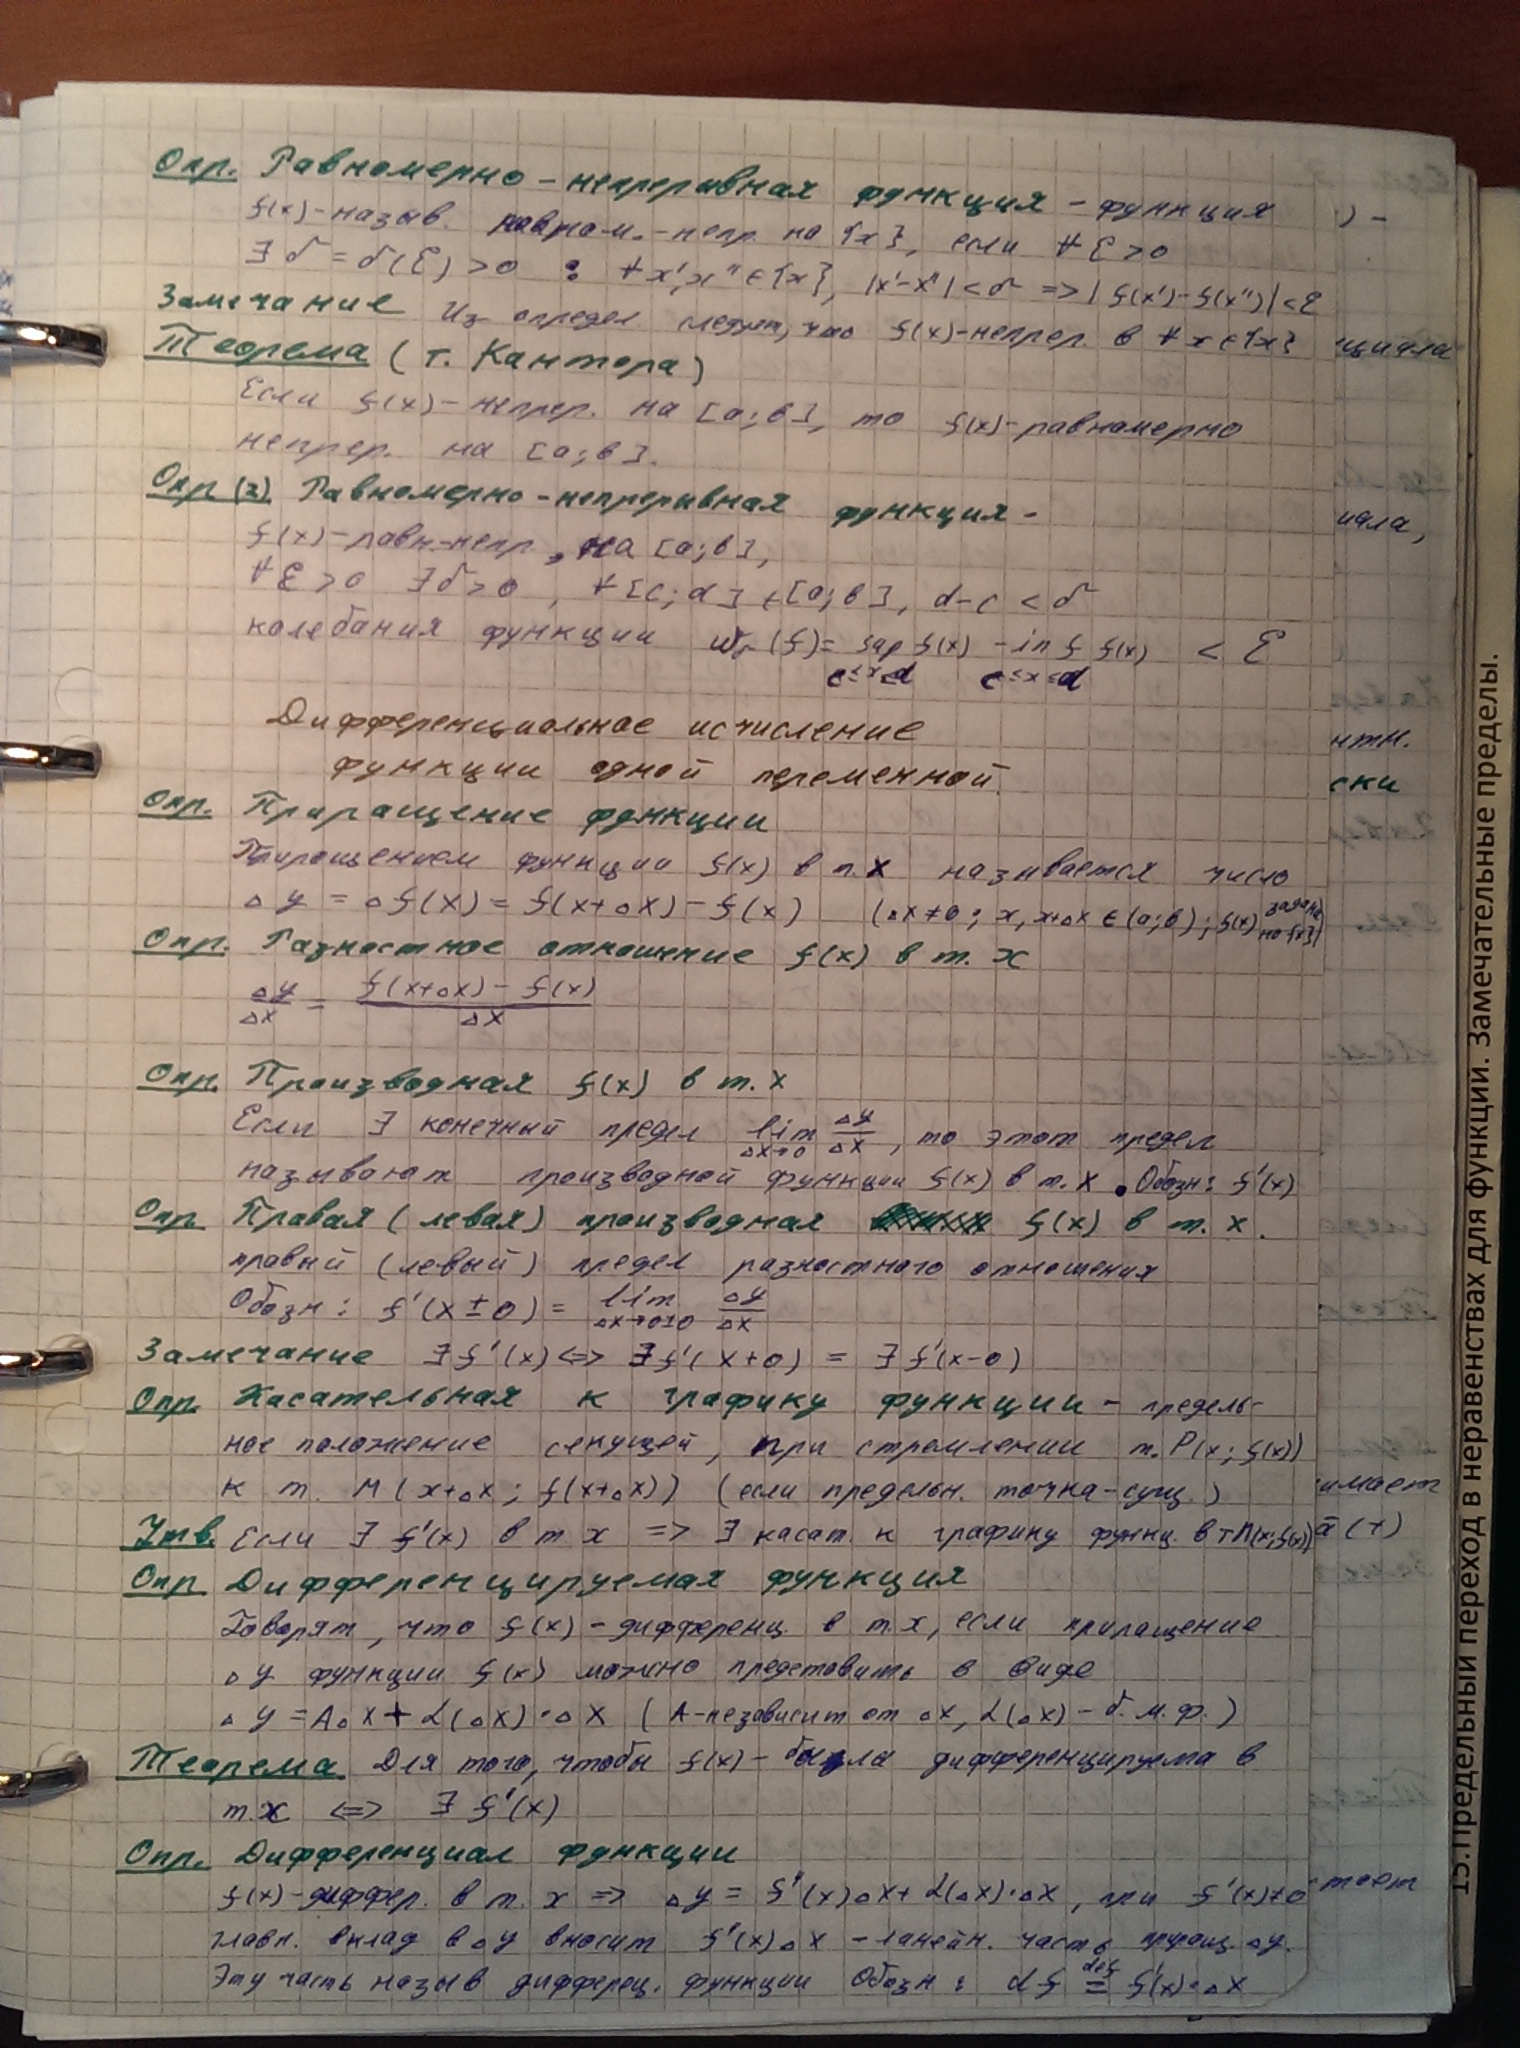 Опр. Равномерно-непрерывная функция - функция
f(x)-назыв. равном.-непр. на {x}, если ∀ Ɛ>0
∃ δ = δ(Ɛ) >0 : ∀ x', x'' ∈ {x}, |x'-x''| < δ => | f(x')-f(x'')| < Ɛ
Замечание Из определ следует, что f(x)-непрер. в ∀ x ∈ {x}
Теорема (т. Кантора)
Если f(x)-непрер. на [a;b], то f(x)-равномерно
непрер. на [a;b].
Опр (2) Равномерно-непрерывная функция -
f(x)-равн.-непр. на [a;b],
∀ Ɛ >0 ∃ δ > 0 , ∀ [c;d] ∈ [a;b], d-c < δ
колебания функции (f) = sup f(x) - inf f(x) < Ɛ
c≤x≤d c≤x≤d
Дифференциальное исчисление
функции одной переменной.
Опр. Приращение функции
Приращением функции f(x) в т. x называется число
△y = △f(x) = f(x+△x) - f(x) (△x≠0; x, x+△x ∈ (a;b); f(x) задана на {x})
Опр. Разностное отношение f(x) в т. x
△y/△x = (f(x+△x) - f(x))/△x
Опр. Производная f(x) в т. x
Если ∃ конечный предел lim △x→0 △y/△x, то этот предел
называют производной функции f(x) в т. x. Обозн: f'(x)
Опр Правая (левая) производная f(x) в т. x.
правый (левый) предел разностного отношения
Обозн: f'(x±0) = lim △x→0±0 △y/△x
Замечание ∃ f'(x) <=> ∃ f'(x+0) = ∃ f'(x-0)
Опр. Касательная к графику функции - предель-
ное положение секущей, при стремлении т. P(x; f(x))
к т. M(x+△x; f(x+△x)) (если предельн. точка-сущ.)
Утв. Если ∃ f'(x) в т. x => ∃ касат. к графику функц. в т М(x; f(x))
Опр Дифференцируемая функция
Говорят, что f(x)-дифференц. в т. x, если приращение
△y функции f(x) можно представить в виде
△y = A△x + α(△x)·△x (А-независит от △x, α(△x) - б.м.ф.)
Теорема Для того, чтобы f(x)- была дифференцируема в
т. x <=> ∃ f'(x)
Опр. Дифференциал функции
f(x)-диффер. в т. x => △y = f'(x)△x + α(△x)·△x, при f'(x)≠0
главн. вклад в △y вносит f'(x)△x - линейн. часть приращ. △y.
Эту часть назыв дифферец. функции Обозн: df def= f'(x)·△x
) -
циала
иала,
нтн.
ски
имает
ā (+)
тоет
15.Предельный переход в неравенствах для функции. Замечательные пределы.